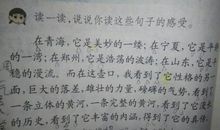 读一读,说说你读这些句子的感受。
在青海,它是美妙的一缕;在宁夏,它是平
的一湾;在郑州,它是浩荡的波涛;在山东,它是
稳的漫流。而在这壶口,我看到了它性格的另一
面,巨大的落差,雄壮的力量,磅礴的气势,看到了
一条立体的黄河,一条完整的黄河,看到了它漫
的历史,看到了它丰富的内涵,得到了它的真谛。